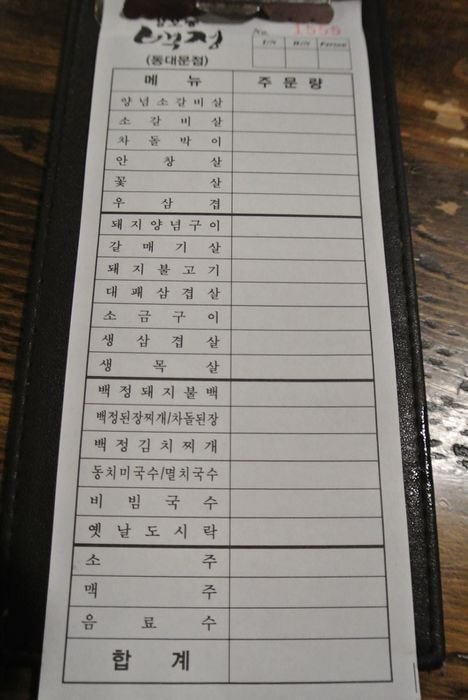 No. 1555
백정
(동대문점)
T/N B/N Person
메뉴 주문량
양념소갈비살
소갈비살
차돌박이
안창살
꽃살
우삼겹
돼지양념구이
갈매기살
돼지불고기
대패삼겹살
소금구이
생삼겹살
생목살
백정돼지불백
백정된장찌개/차돌된장
백정김치찌개
동치미국수/멸치국수
비빔국수
옛날도시락
소주
맥주
음료수
합계